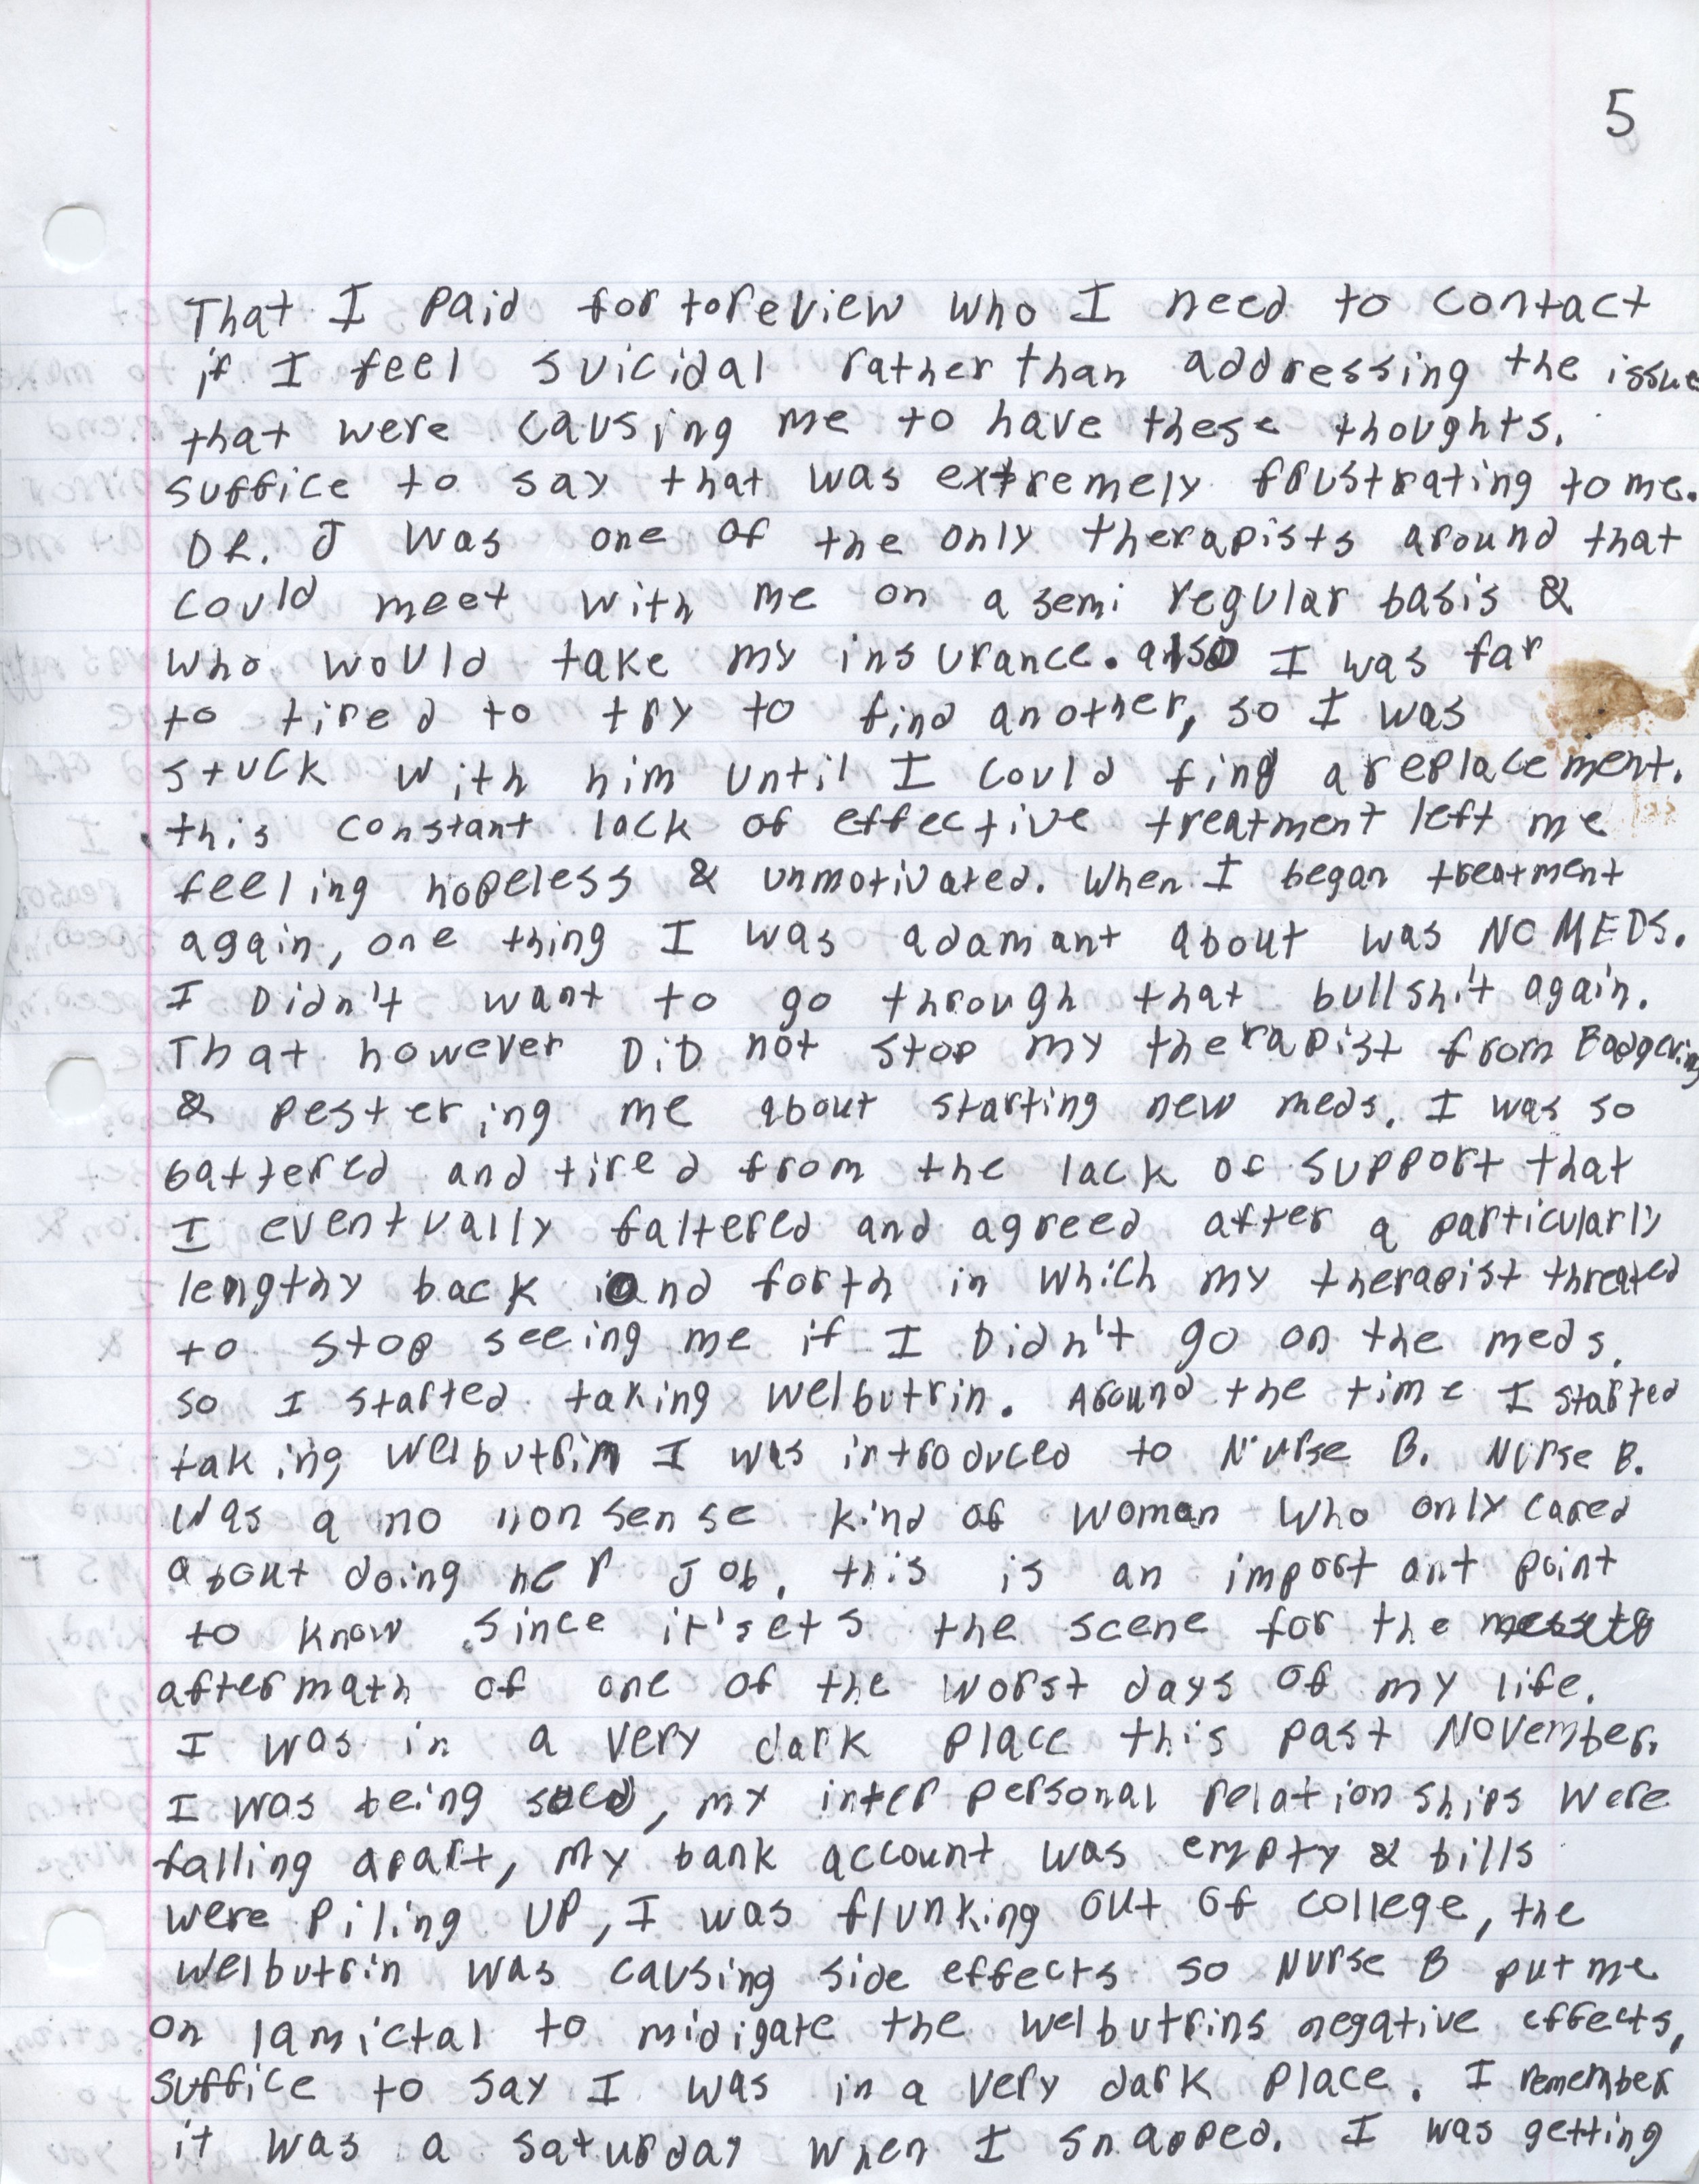 5
That I paid for to review who I need to contact
if I feel suicidal rather than addressing the issue
that were causing me to have these thoughts.
suffice to say that was extremely frustrating to me.
DR. J was one of the only therapists around that
could meet with me on a semi regular basis &
who would take my insurance. also I was far
to tired to try to find another, so I was
stuck with him until I could find a replacement.
this constant lack of effective treatment left me
feeling hopeless & unmotivated. When I began treatment
again, one thing I was adamant about was NO MEDS.
I Didn't want to go through that bullshit again.
That however DiD not stop my therapist from Badgering
& pestering me about starting new meds. I was so
battered and tired from the lack of support that
I eventually faltered and agreed after a particularly
lengthy back and forth in which my therapist threated
to stop seeing me if I Didn't go on the meds.
so I started taking welbutrin. Around the time I started
taking welbutrin I was introduced to Nurse B. Nurse B.
was a no nonsense kind of woman who only cared
about doing her Job. this is an important point
to know since it'sets the scene for the
aftermath of one of the worst days of my life.
I was in a very dark place this past November.
I was being sued, my inter personal relationships were
falling apart, my bank account was empty & bills
were piling up, I was flunking out of college, the
welbutrin was causing side effects so Nurse B put me
on lamictal to midigate the welbutrins negative effects,
suffice to say I was in a very dark place. I remember
it was a saturday when I snapped. I was getting